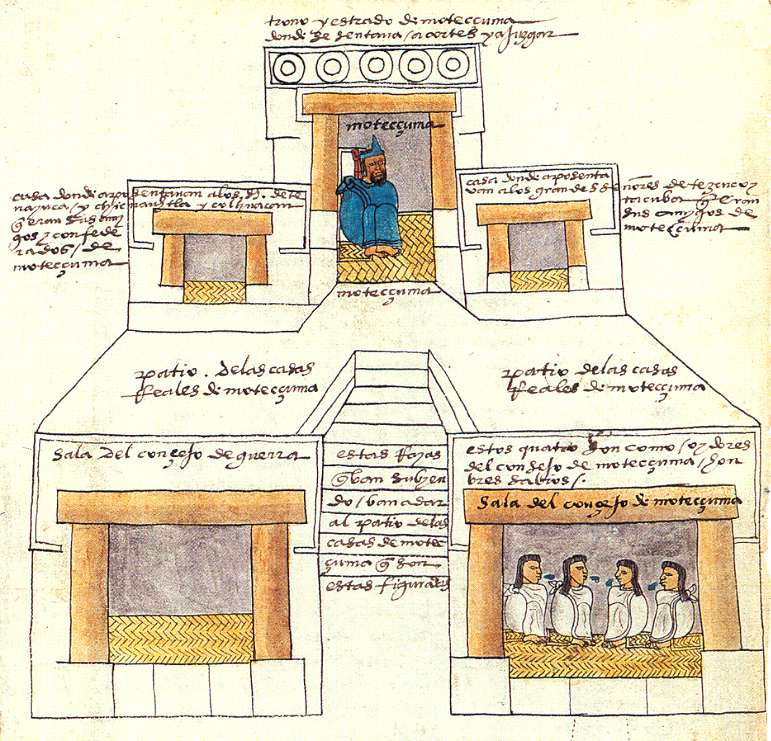 trono y estrado de moteccuma
donde se sentava / a cortes y a juzgar
moteccuma
moteccuma
casa donde aposentavan a los s.s. de te
nayuca / y chicnauhtla y colhuacan
q̄ eran sus ami
gos y confede
rados / de
moteccuma
casa donde aposenta
van a los grandes señores de tezcuco y
tacuba q̄ eran
sus amigos de
moteccuma
patio . de las casas
Reales de moteccuma
patio de las casas
Reales de moteccuma
Sala del conçejo de guerra
estas Rayas
q̄ ban subyen
do / ban a dar
al patio de las
casas de motec
çuma q̄ son
estas figuradas
estos quatro son como / oydores
del consejo de moteccuma / hon
bres sabios /.
Sala del conçejo de moteccuma